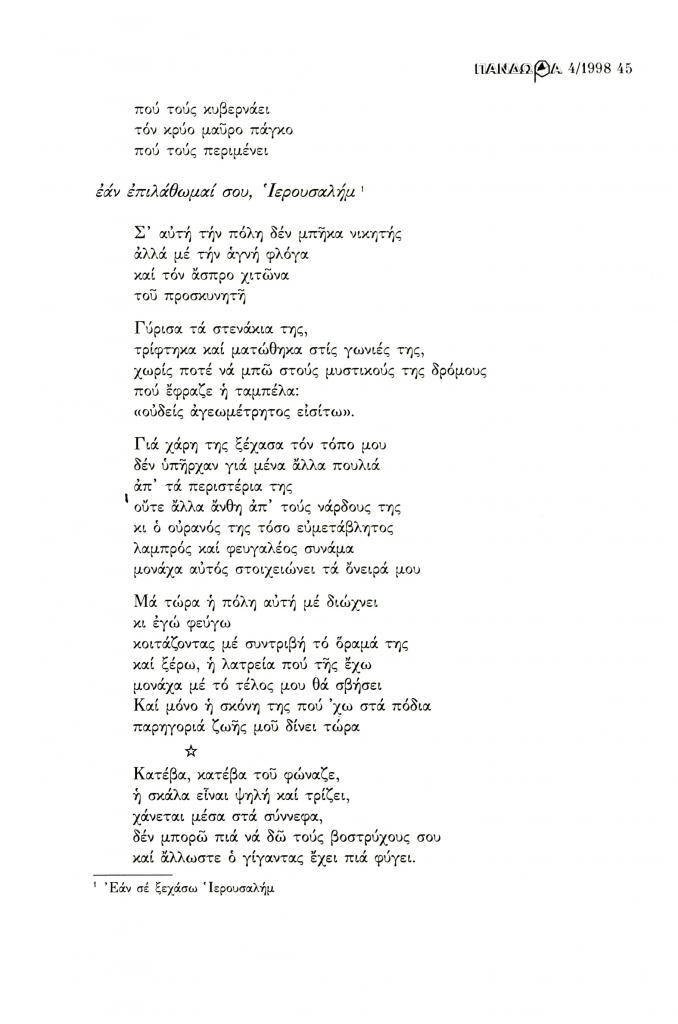 ΠΑΝΔΩΡΑ 4/1998 45
πού τούς κυβερνάει
τόν κρύο μαῦρο πάγκο
πού τούς περιμένει
ἐάν ἐπιλάθωμαί σου, Ἱερουσαλήμ ¹
Σ᾽ αὐτή τήν πόλη δέν μπῆκα νικητής
ἀλλά μέ τήν ἁγνή φλόγα
καί τόν ἄσπρο χιτῶνα
τοῦ προσκυνητῆ
Γύρισα τά στενάκια της,
τρίφτηκα καί ματώθηκα στίς γωνιές της,
χωρίς ποτέ νά μπῶ στούς μυστικούς της δρόμους
πού ἔφραζε ἡ ταμπέλα:
«οὐδείς ἀγεωμέτρητος εἰσίτω».
Γιά χάρη της ξέχασα τόν τόπο μου
δέν ὑπῆρχαν γιά μένα ἄλλα πουλιά
ἀπ᾽ τά περιστέρια της
οὔτε ἄλλα ἄνθη ἀπ᾽ τούς νάρδους της
κι ὁ οὐρανός της τόσο εὐμετάβλητος
λαμπρός καί φευγαλέος συνάμα
μονάχα αὐτός στοιχειώνει τά ὄνειρά μου
Μά τώρα ἡ πόλη αὐτή μέ διώχνει
κι ἐγώ φεύγω
κοιτάζοντας μέ συντριβή τό ὅραμά της
καί ξέρω, ἡ λατρεία πού τῆς ἔχω
μονάχα μέ τό τέλος μου θά σβήσει
Καί μόνο ἡ σκόνη της πού ᾽χω στά πόδια
παρηγοριά ζωῆς μοῦ δίνει τώρα
☆
Κατέβα, κατέβα τοῦ φώναζε,
ἡ σκάλα εἶναι ψηλή καί τρίζει,
χάνεται μέσα στά σύννεφα,
δέν μπορῶ πιά νά δῶ τούς βοστρύχους σου
καί ἄλλωστε ὁ γίγαντας ἔχει πιά φύγει.
¹ Ἐάν σέ ξεχάσω Ἱερουσαλήμ